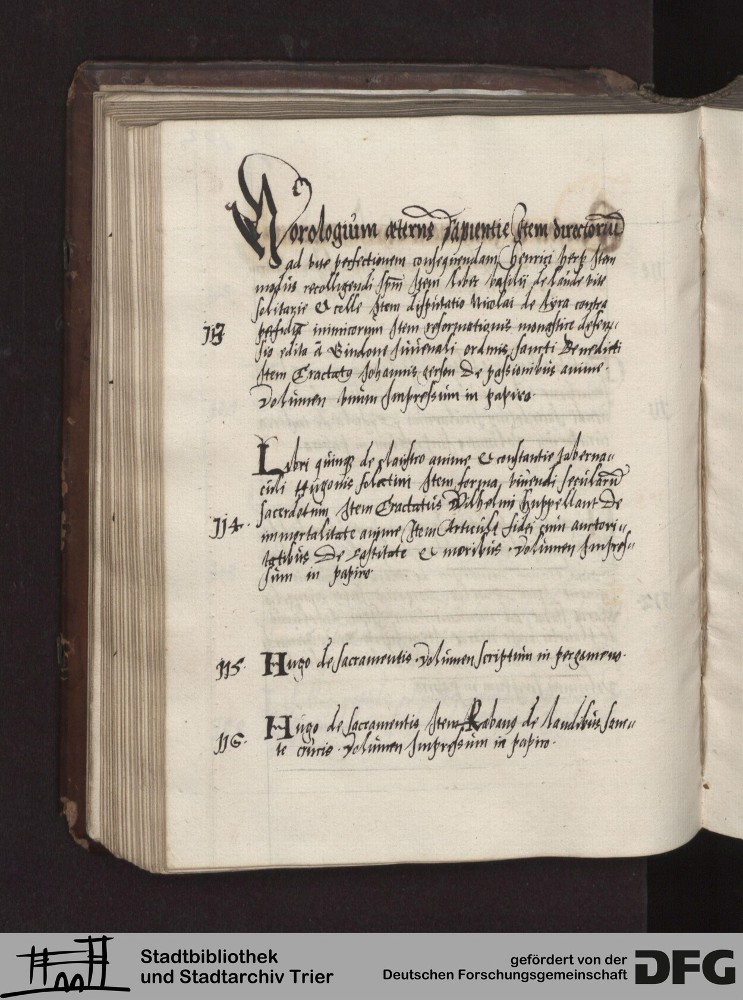 Horologium æterne sapientie Item directoriũ
ad vite perfectionem consequendam Henrici herp Item
modus recolligendi spm̃ Item liber basilij de laude vite
solitarie & celle Item disputatio Nicolai de lyra contra
perfidiã inimicorum Item reformationis monastice defen-
113
sio edita a Guidone Juvenali ordinis sancti Benedicti
Item Tractatus Johannis gerson De passionibus anime.
Volumen vnum Impressum in papiro.
Libri quinqꝫ de claustro anime & constantie taberna-
culi Hugonis folietini Item forma vivendi seculariũ
sacerdotum Item Tractatus Wilhelmi Huppellant De
114.
immortalitate anime Item Articuli fidei cum auctori-
tatibus De castitate & moribus. Volumen Impres-
sum in papiro
115. Hugo de sacramentis. Volumen scriptum in pergameno.
116. Hugo de sacramentis Item Rabanus de laudibus sanc-
te crucis. Volumen Impressum in papiro.
Stadtbibliothek
und Stadtarchiv Trier
gefördert von der
Deutschen Forschungsgemeinschaft
DFG